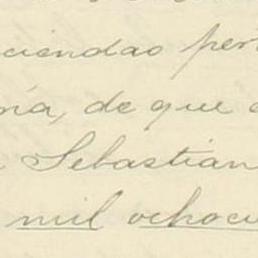 ciendas per
ía, de que
Sebastian
mil ochoci